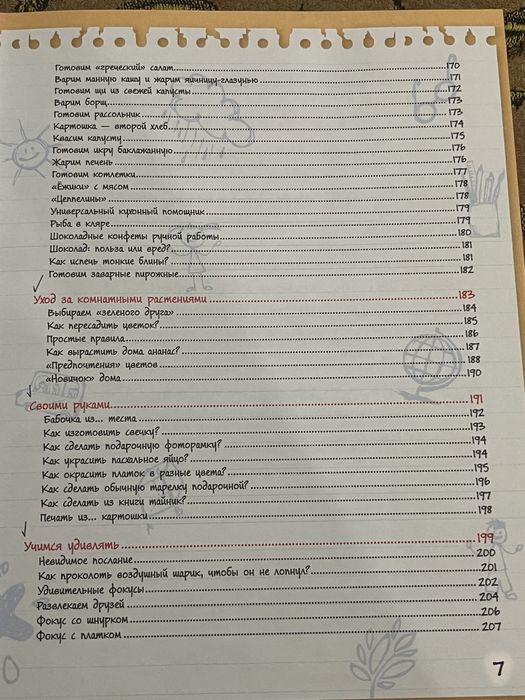 Готовим «греческий» салат 170
Варим манную кашу и жарим яичницу-глазунью 171
Готовим щи из свежей капусты 172
Варим борщ 173
Готовим рассольник 173
Картошка — второй хлеб 174
Квасим капусту 175
Готовим икру баклажанную 176
Жарим печень 176
Готовим котлетки 177
«Ёжики» с мясом 178
«Цеппелины» 178
Универсальный кухонный помощник 179
Рыба в кляре 179
Шоколадные конфеты ручной работы 180
Шоколад: польза или вред? 181
Как испечь тонкие блины? 181
Готовим заварные пирожные 182
Уход за комнатными растениями 183
Выбираем «зеленого друга» 184
Как пересадить цветок? 185
Простые правила 186
Как вырастить дома ананас? 187
«Предпочтения» цветов 188
«Новичок» дома 190
Своими руками 191
Бабочка из... теста 192
Как изготовить свечку? 193
Как сделать подарочную фоторамку? 194
Как украсить пасхальное яйцо? 194
Как окрасить платок в разные цвета? 195
Как сделать обычную тарелку подарочной? 196
Как сделать из книги тайник? 197
Печать из... картошки 198
Учимся удивлять 199
Невидимое послание 200
Как проколоть воздушный шарик, чтобы он не лопнул? 201
Удивительные фокусы 202
Развлекаем друзей 204
Фокус со шнурком 206
Фокус с платком 207
7